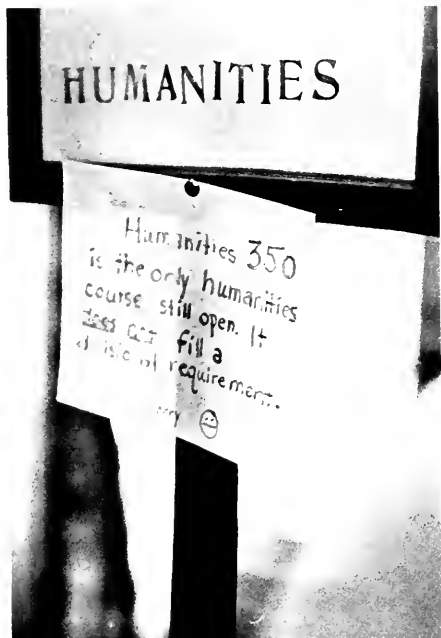 HUMANITIES
Humanities 350
is the only humanities
course still open. It
does not fill a
divisional requirement.